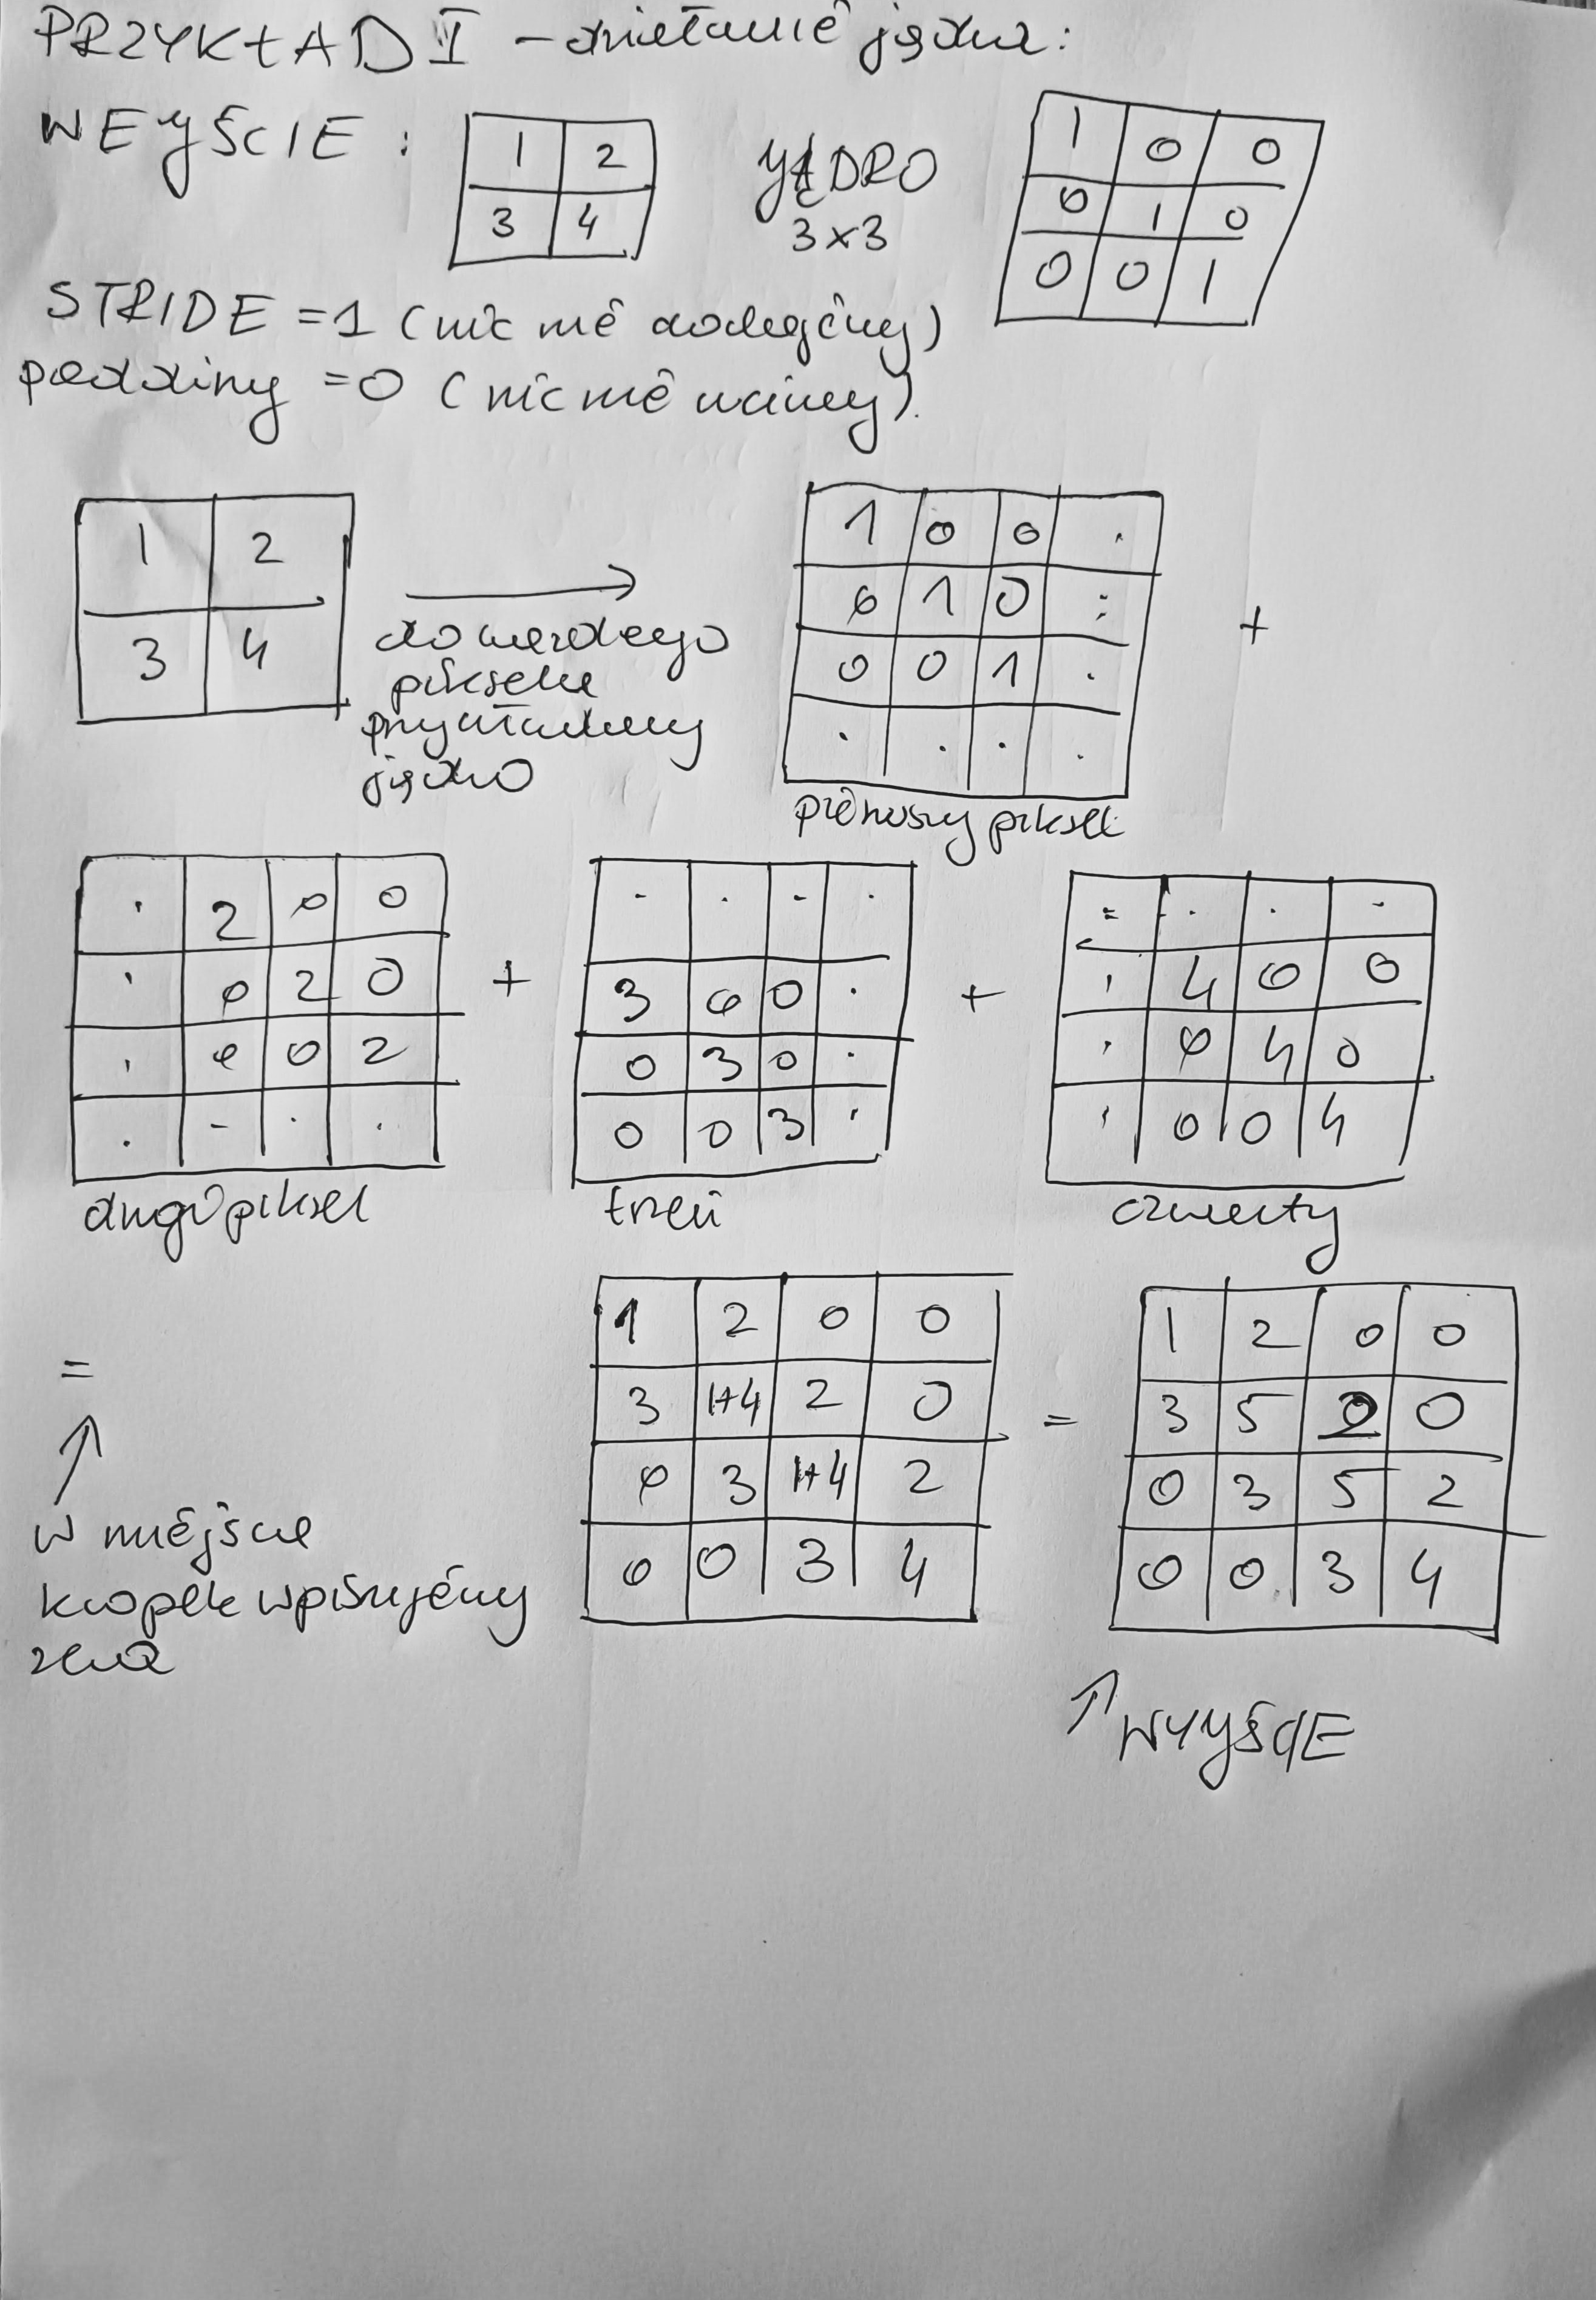 PRZYKŁAD I – działanie jądra:
WEJŚCIE :
1 2
3 4
JĄDRO
3x3
1 0 0
0 1 0
0 0 1
STRIDE = 1 (nic nie doklejamy)
padding = 0 (nic nie ucinamy).
1 2
3 4
do każdego
piksela
przykładamy
jądro
1 0 0 .
0 1 0 :
0 0 1 .
. . . .
+
pierwszy piksel
. 2 0 0
. 0 2 0
. 0 0 2
. - . .
drugi piksel
+
- . - .
3 0 0 .
0 3 0 .
0 0 3 .
trzeci
+
= . . -
. 4 0 0
. 0 4 0
. 0 0 4
czwarty
=
↑
w miejsce
kropek wpisujemy
zera
1 2 0 0
3 1+4 2 0
0 3 1+4 2
0 0 3 4
=
1 2 0 0
3 5 2 0
0 3 5 2
0 0 3 4
↑ WYJŚCIE